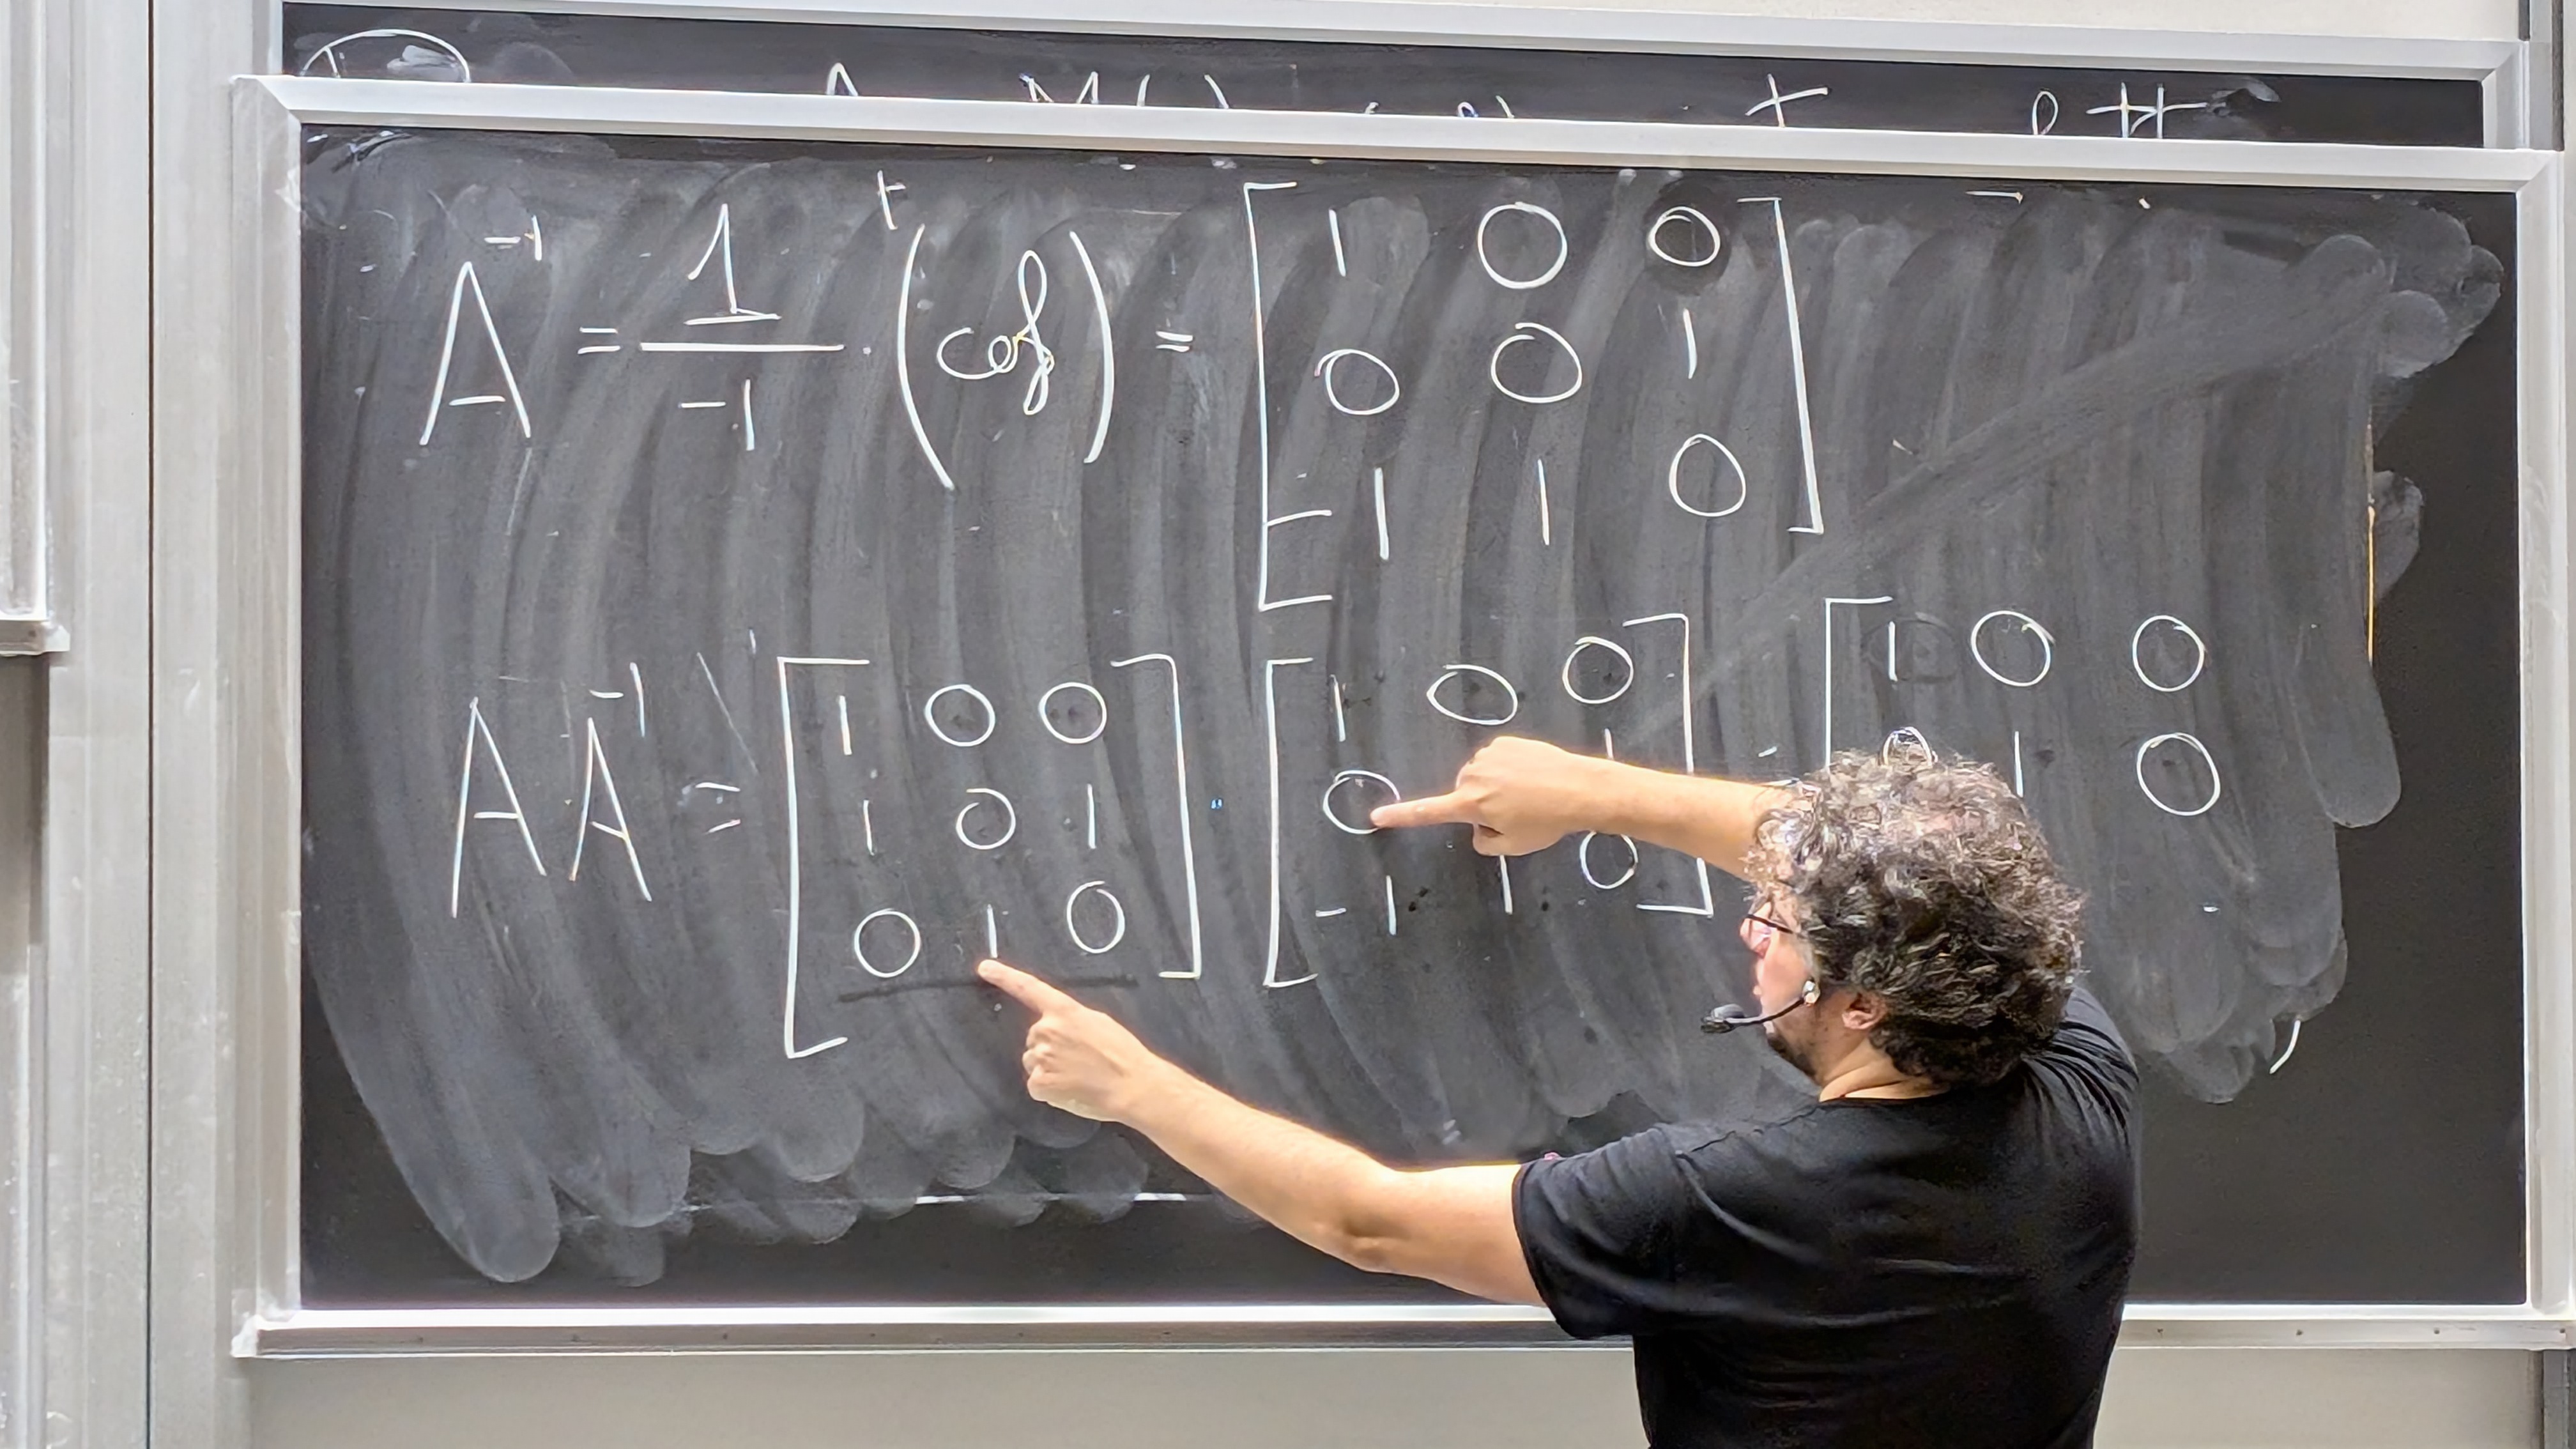 A⁻¹ = 1/-1 · ᵗ(cof) = [1 0 0
0 0 1
-1 1 0]
A A⁻¹ = [1 0 0
1 0 1
0 1 0] · [1 0 0
0 1
-1 1 0] = [1 0 0
0 1 0